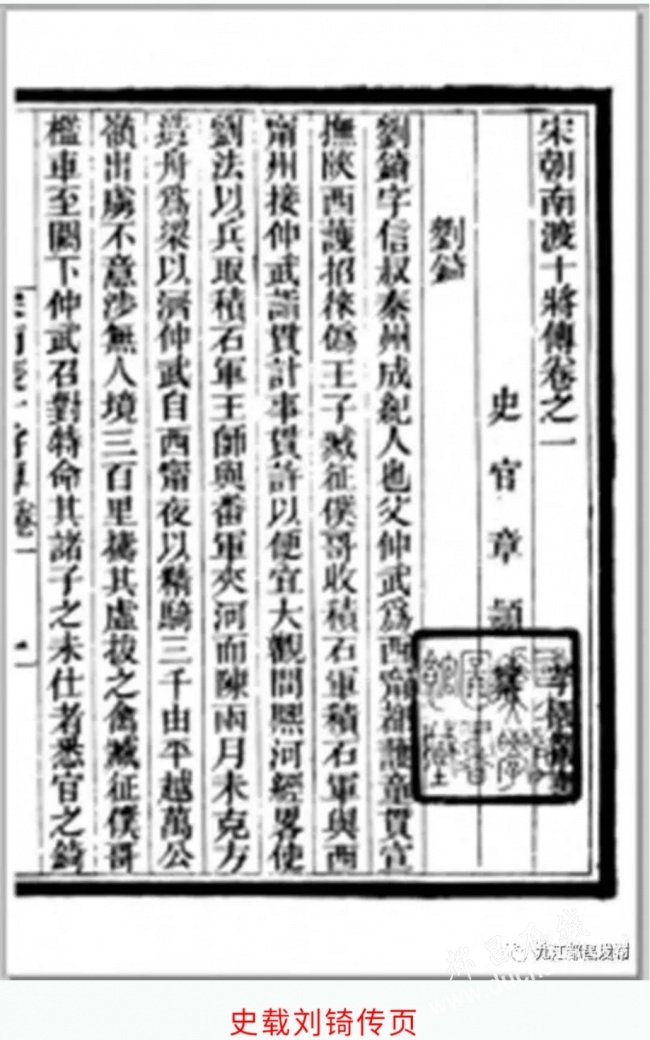 宋朝南渡十將傳卷之一
史官章穎
劉錡
劉錡字信叔秦州成紀人也父仲武爲西甯都護童貫宣
撫陝西護招徠僞王子臧征僕哥收積石軍積石軍與西
甯州接仲武詣貫計事貫許以便宜大觀間熙河經畧使
劉法以兵取積石軍王師與番軍夾河而陳兩月未克方
造舟爲梁以濟仲武自西甯夜以精騎三千由平越萬公
嶺出虜不意涉無人境三百里擣其虛拔之禽臧征僕哥
檻車至闕下仲武召對特命其諸子之未仕者悉官之錡
九江都昌发布
史载刘锜传页